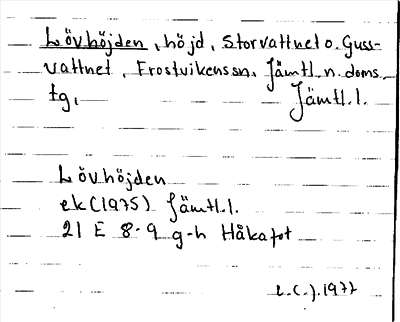 Lövhöjden, höjd, Storvattnet o. Guss-
vattnet, Frostvikens sn. Jämtl. n. doms.
tg, Jämtl. l.
Lövhöjden
ek (1975) Jämtl. l.
21 E 8-9 g-h Håkafot
1977